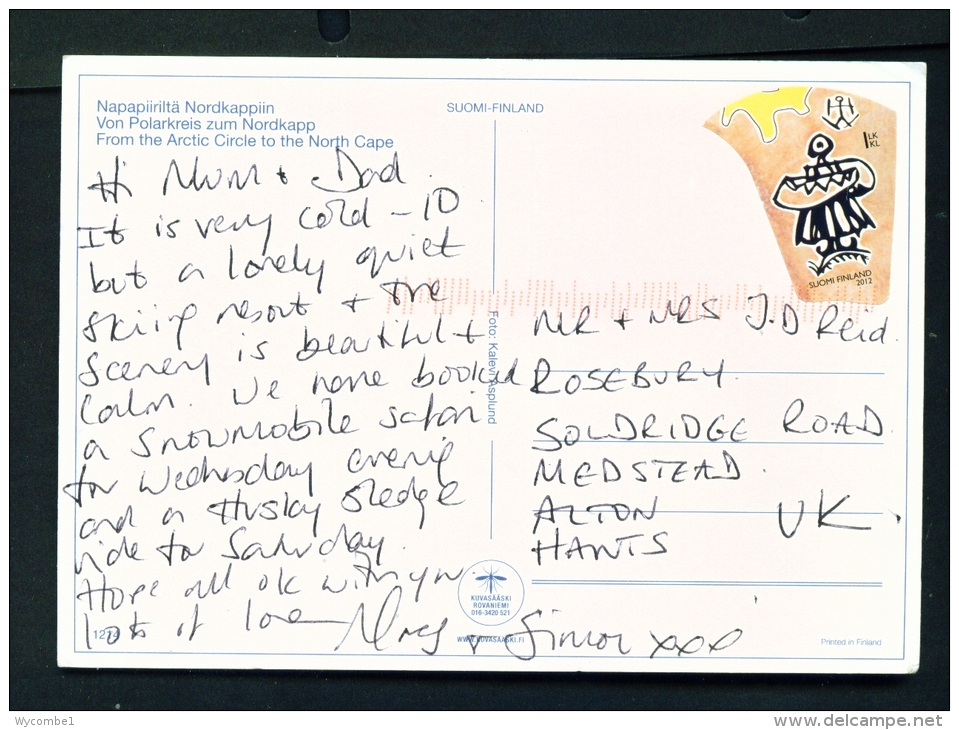 Napapiiriltä Nordkappiin
Von Polarkreis zum Nordkapp
From the Arctic Circle to the North Cape
SUOMI-FINLAND
1 LK
KL
SUOMI FINLAND
2012
Hi Mum + Dad.
It is very cold -10
but a lovely quiet
skiing resort + the
Scenery is beautiful +
Calm. We have booked
a Snowmobile safari
for Wednesday evening
and a Husky Sledge
ride for Saturday.
Hope all ok with you.
lots of love
+ Simon xxx
Foto: Kalevi Asplund
MR + MRS J.D Reid.
ROSEBURY.
SOLDRIDGE ROAD.
MEDSTEAD.
ALTON
HANTS
UK.
KUVASÄÄSKI
ROVANIEMI
016-3420 521
WWW.KUVASAASKI.FI
Printed in Finland
Wycombe1
delcampe.net